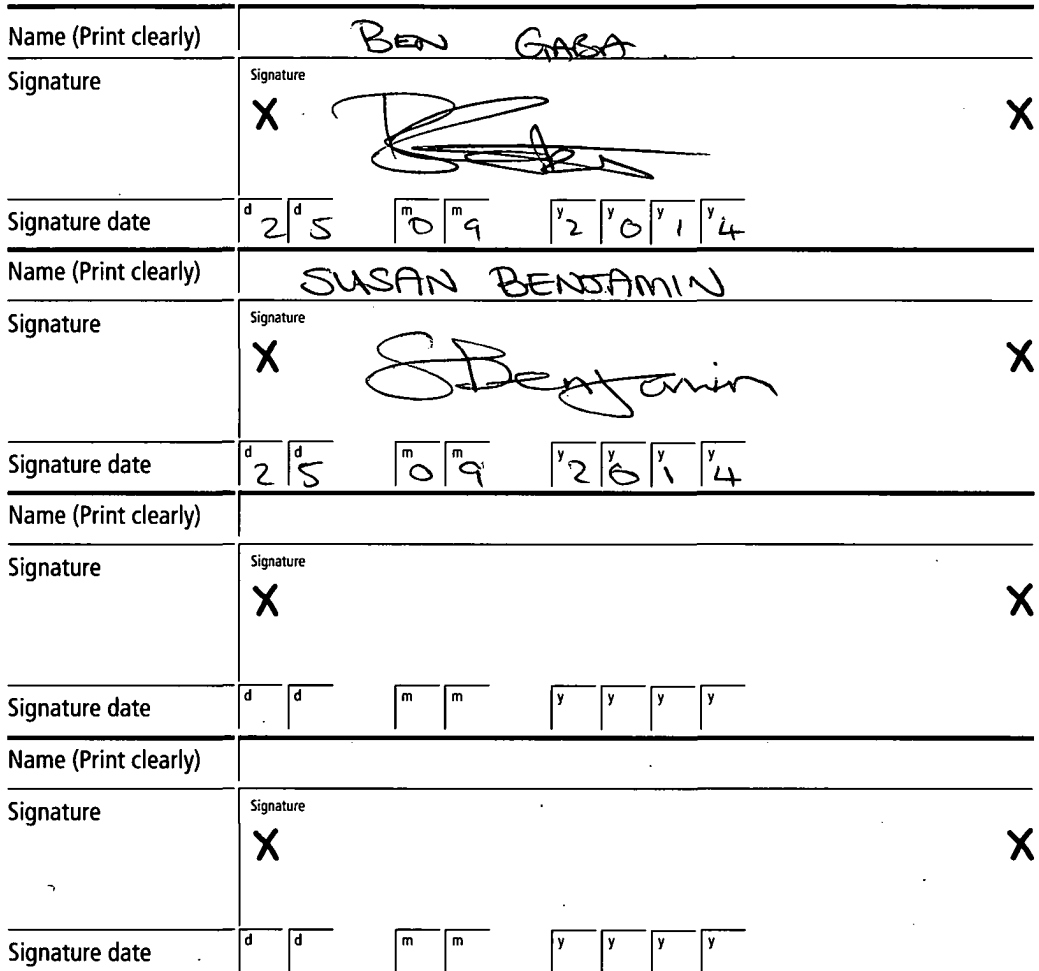 Name (Print clearly) BEN GABA
Signature Signature
X X
Signature date d 2 d 5 m 0 m 9 y 2 y 0 y 1 y 4
Name (Print clearly) SUSAN BENJAMIN
Signature Signature
X SBenjamin X
Signature date d 2 d 5 m 0 m 9 y 2 y 0 y 1 y 4
Name (Print clearly)
Signature Signature
X X
Signature date d d m m y y y y
Name (Print clearly)
Signature Signature
X X
Signature date d d m m y y y y